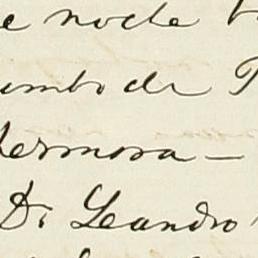 e noche
umbo de
hermosa —
Dr Leandro